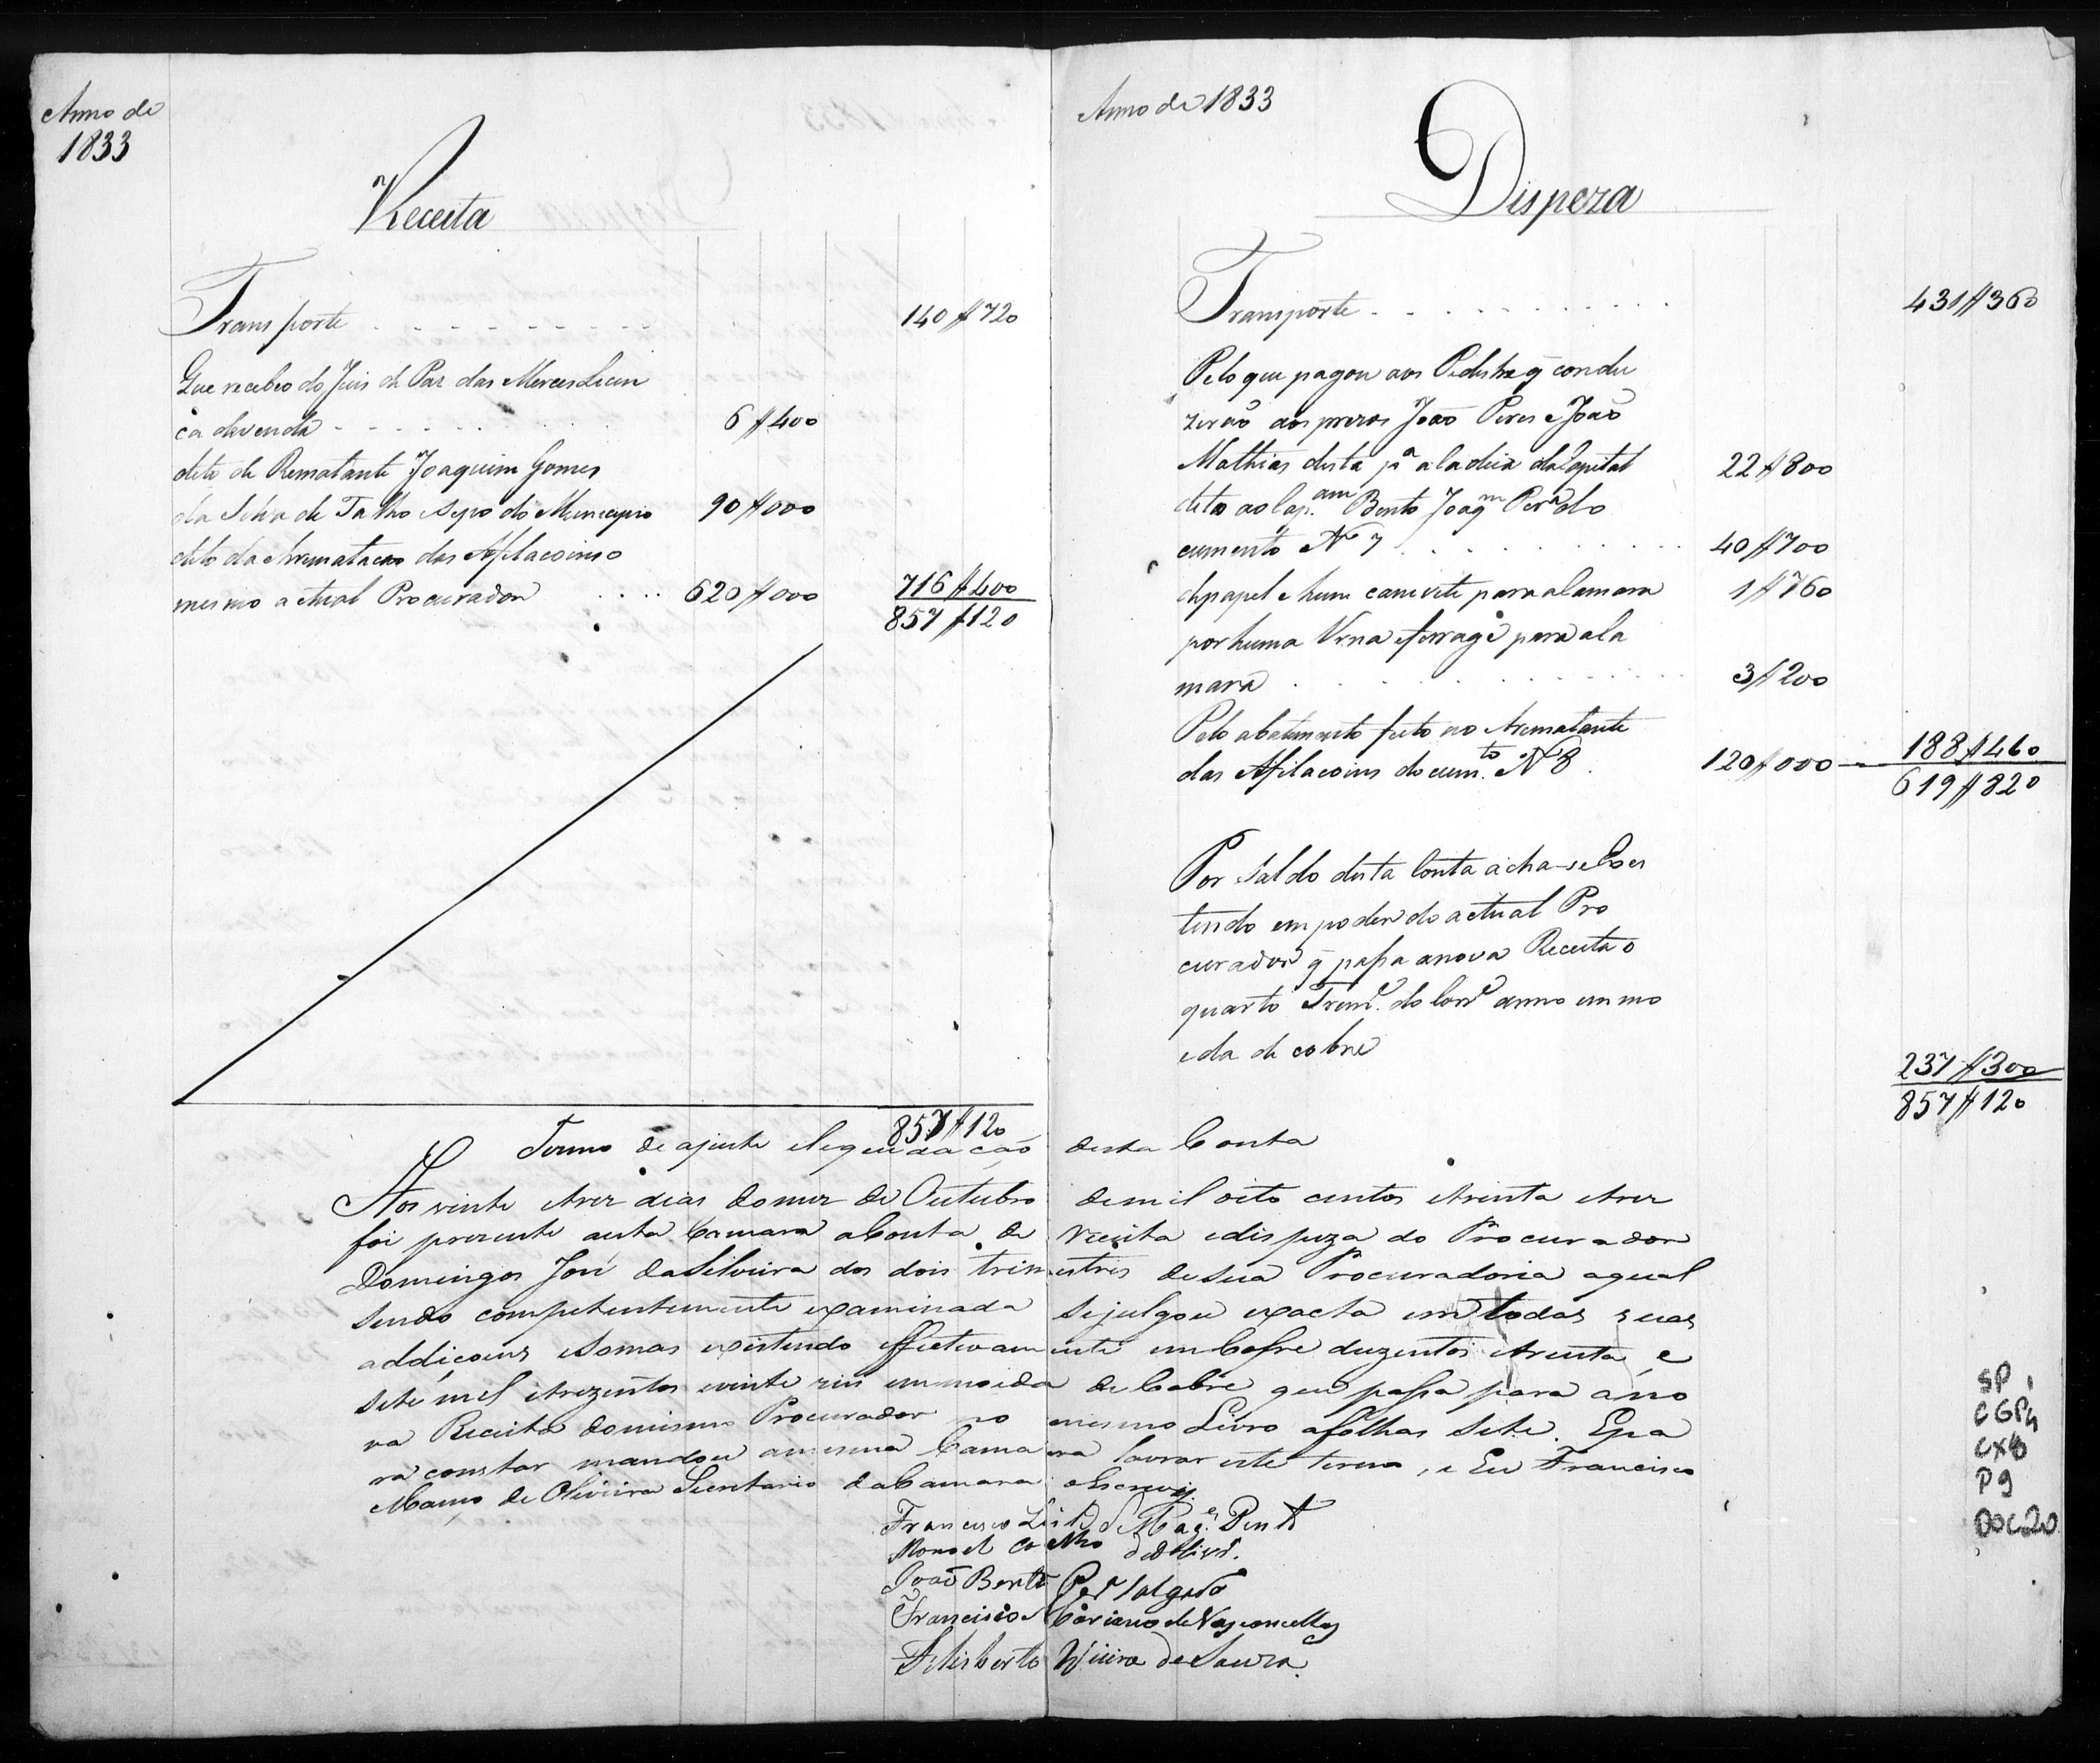 Anno de
1833
Receita
Transporte 140$720
Que recebeo do Juis de Paz das Merces Licen
ca da venda 6$400
dito de Rematante Joaquim Gomes
da Silva de Talho e sepo do Municipio 90$000
dito da Arematacao das Afilacoins o
mesmo actual Procurador 620$000 716$400
857$120
857$120
Anno de 1833
Dispeza
Transporte 431$360
Pelo que pagou aos Pedestre q̃ condu
zirão aos prezos João Peres e João
Mathias desta pª a Cadeia da Capital 22$800
dito ao Cap.am Bento Joaqm Perª do
cumento Nº 7 40$700
de papel e hum canivete para a Camara 1$760
por huma Urna e ferragê para a Ca
mara 3$200
Pelo abatimento feito ao Arematante
das Afilacoins docum.to Nº 8 120$000 188$460
619$820
Por saldo desta Conta acha-se Exes
tindo em poder do actual Pro
curador q̃ passa a nova Receita o
quarto Trime. do Corre anno em mo
eda de cobre
237$300
857$120
Termo de ajuste e lequidacão desta Conta
Aos vinte e trez dias do mez de Outubro de mil oito centos e trinta e trez
foi prezente a esta Camara a Conta de receita e dispeza do Procurador
Domingos José da Silveira dos dois trimestres de sua Procuradoria a qual
sendo competentemente examinada se julgou exacta em todas suas
addiçoens e somas existindo effectivamente em Cofre duzentos e trenta e
sete mil e trezentos e vinte reis em moeda de Cobre que passa para a no
va Receita do mismo Procurador no mesmo Livro a folhas sete. E pa
ra constar mandou a mesma Camara lavrar este termo, e Eu Francisco
de Oliveira Secretario da Camara o Escrevy.
Francisco de Mag.es Pinto
Manoel Coelho de Olivrª.
João Bento Perª Salgado
Francisco Coriano de Vasconcellos
Felisberto Vieira de Souza
SP
CGP4
CX8
P9
DOC20